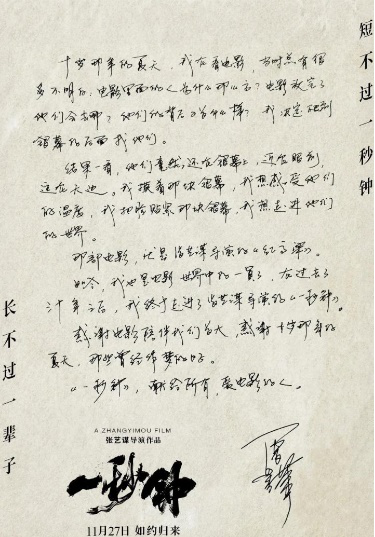 短不过一秒钟
十岁那年的夏天，我在看电影，当时总有很
多不明白，电影里面的人为什么那么高？电影放完了
他们会去哪？他们的背后又有什么样？我决定跑到
银幕的后面找他们。
结果一看，他们竟然还在银幕上，近在眼前，
远在天边。我摸着那块银幕，我想感受他们
的温度，我把脸贴紧那块银幕，我想走进他们
的世界。
那部电影，
如今，我也是电影世界中的一员了，在过去了
廿年之后，我终于走进了张艺谋导演的《一秒钟》。
感谢电影陪伴我们长大，感谢十岁那年的
夏天，那些曾经传梦的时
《一秒钟》，献给所有爱电影的人。
长不过一辈子
A ZHANGYIMOU FILM
张艺谋导演作品
一秒钟
11月27日 如约归来